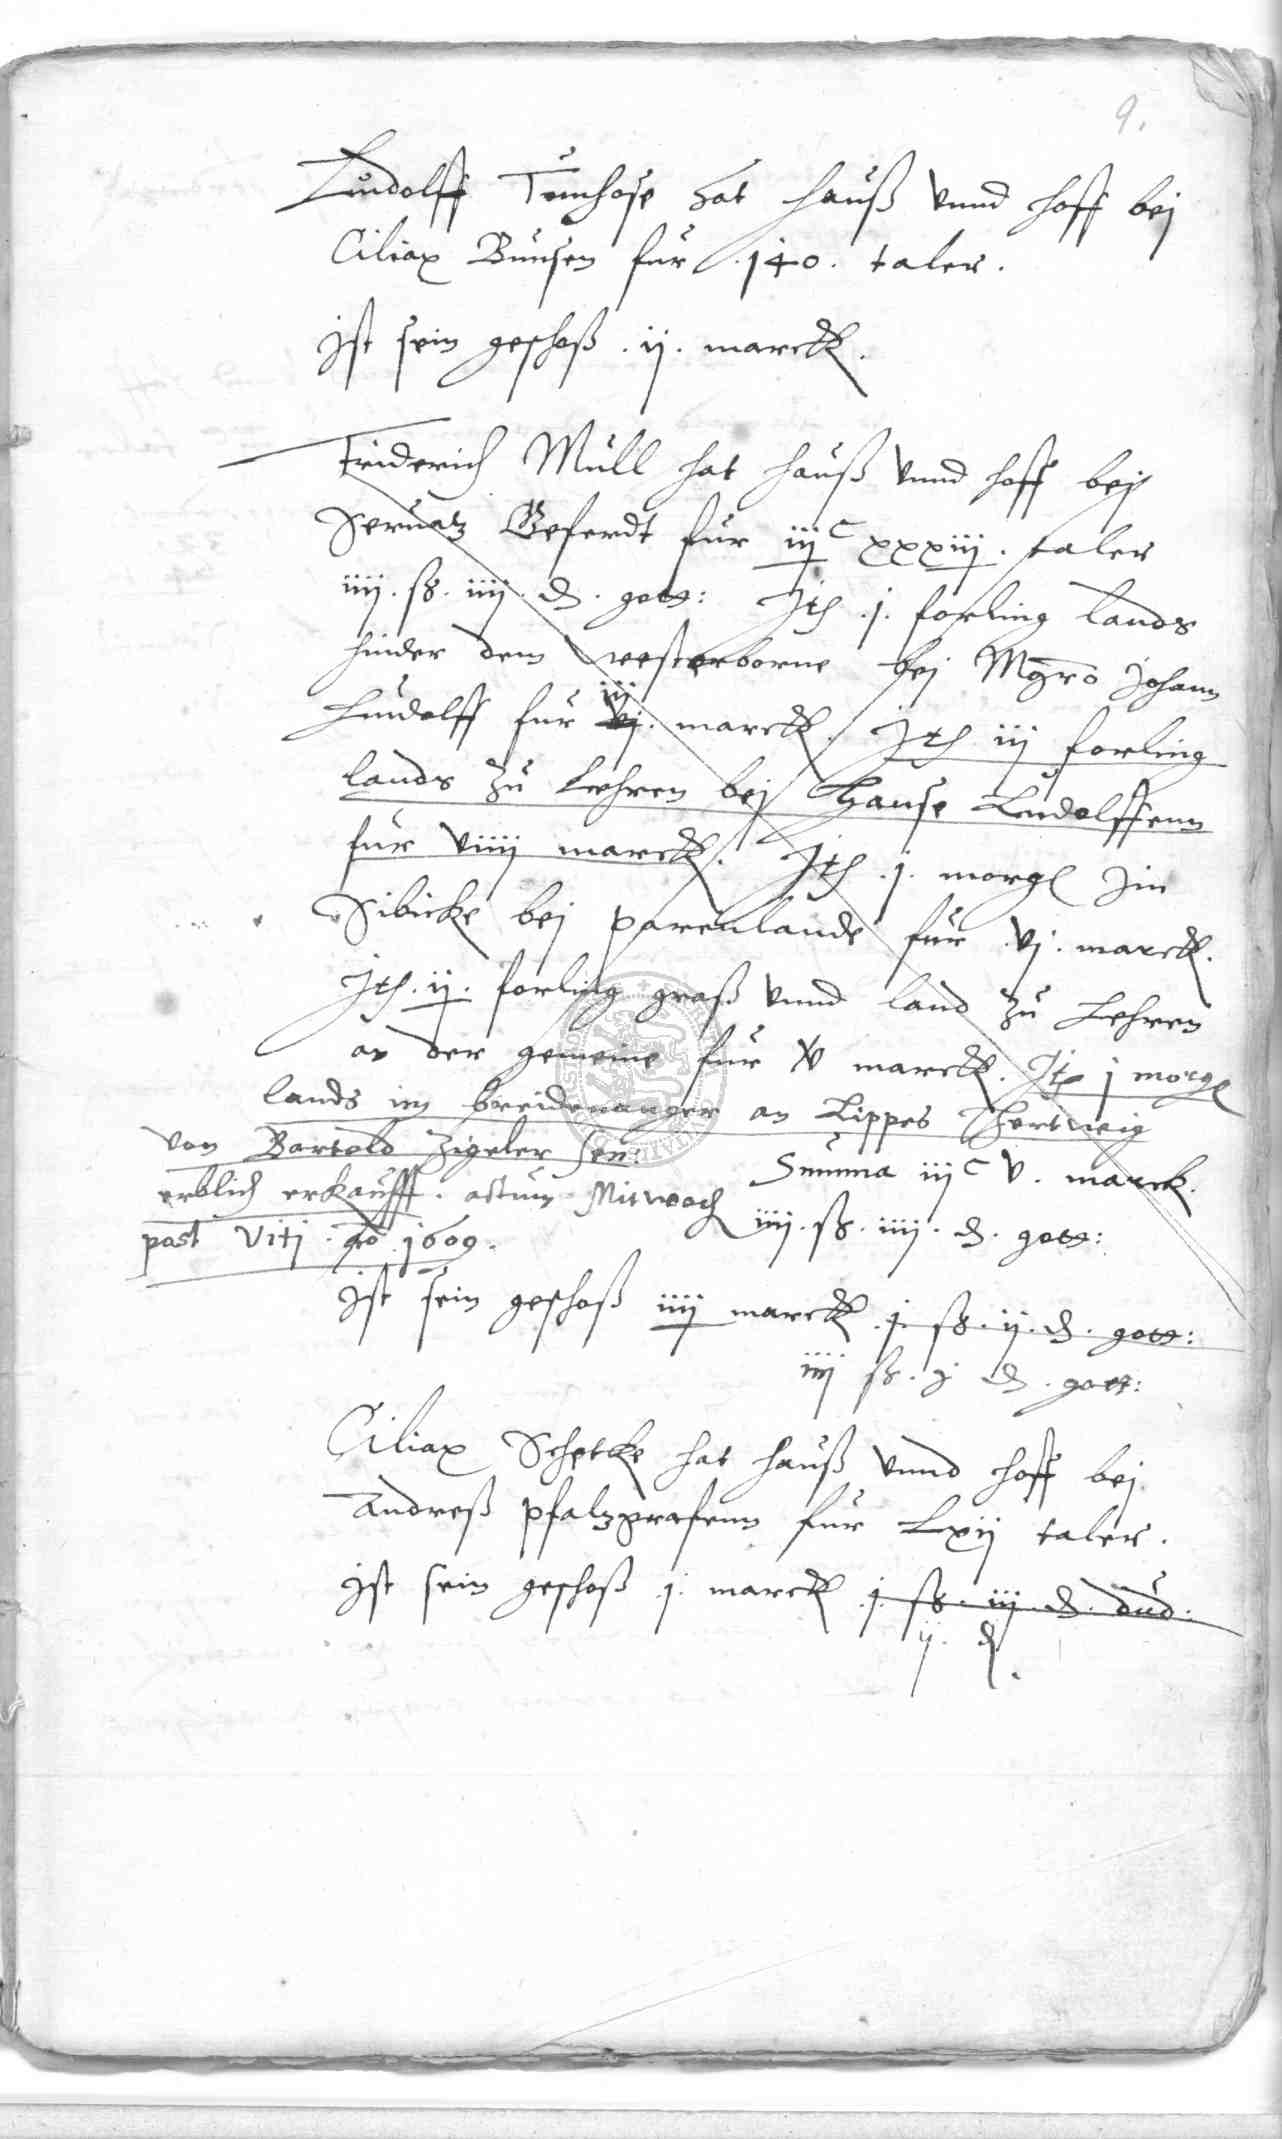 9.
Ludolff Tunhose hat hauß vnnd hoff bej
Ciliax Bunsen fur .140. taler.
Ist sein geschoß .ij. marck.
Friderich Mull hat hauß vnnd hoff bej
Seruatz Geferdt fur iijc xxxiij. taler
iiij. ß. iiij. d. gott: Ith .j. forling lands
hinder dem westerborne bej Mgro Johann
Ludolff fur vj. iij marck. Ith iij forling
lands zu Lehren bej Hanse Ludolffenn
fur viiij marck. Ith .j. morgl Jm
Sibicke bej parenlande fur vj. marck.
Ith. ij. forling graß vnnd land zu Lehren
an der gemeine fur v marck. It j morgl
lands im breidenanger an Lippes Hertwig
von Bartold Zigeler sen:
erblich erkaufft. actum Mitwoch
post Viti. ao 1609.
Summa iijc v. marck.
iiij. ß. iiij. d. gott:
Ist sein geschoß iiij marck .j. ß. ij. d. gott:
iiij ß. j d. gott:
Ciliax Schetke hat hauß vnnd hoff bej
Andreß pfaltzgrafenn fur Lxij taler.
Ist sein geschoß .j. marck .j. ß. iij. d. dud:
ij. d.